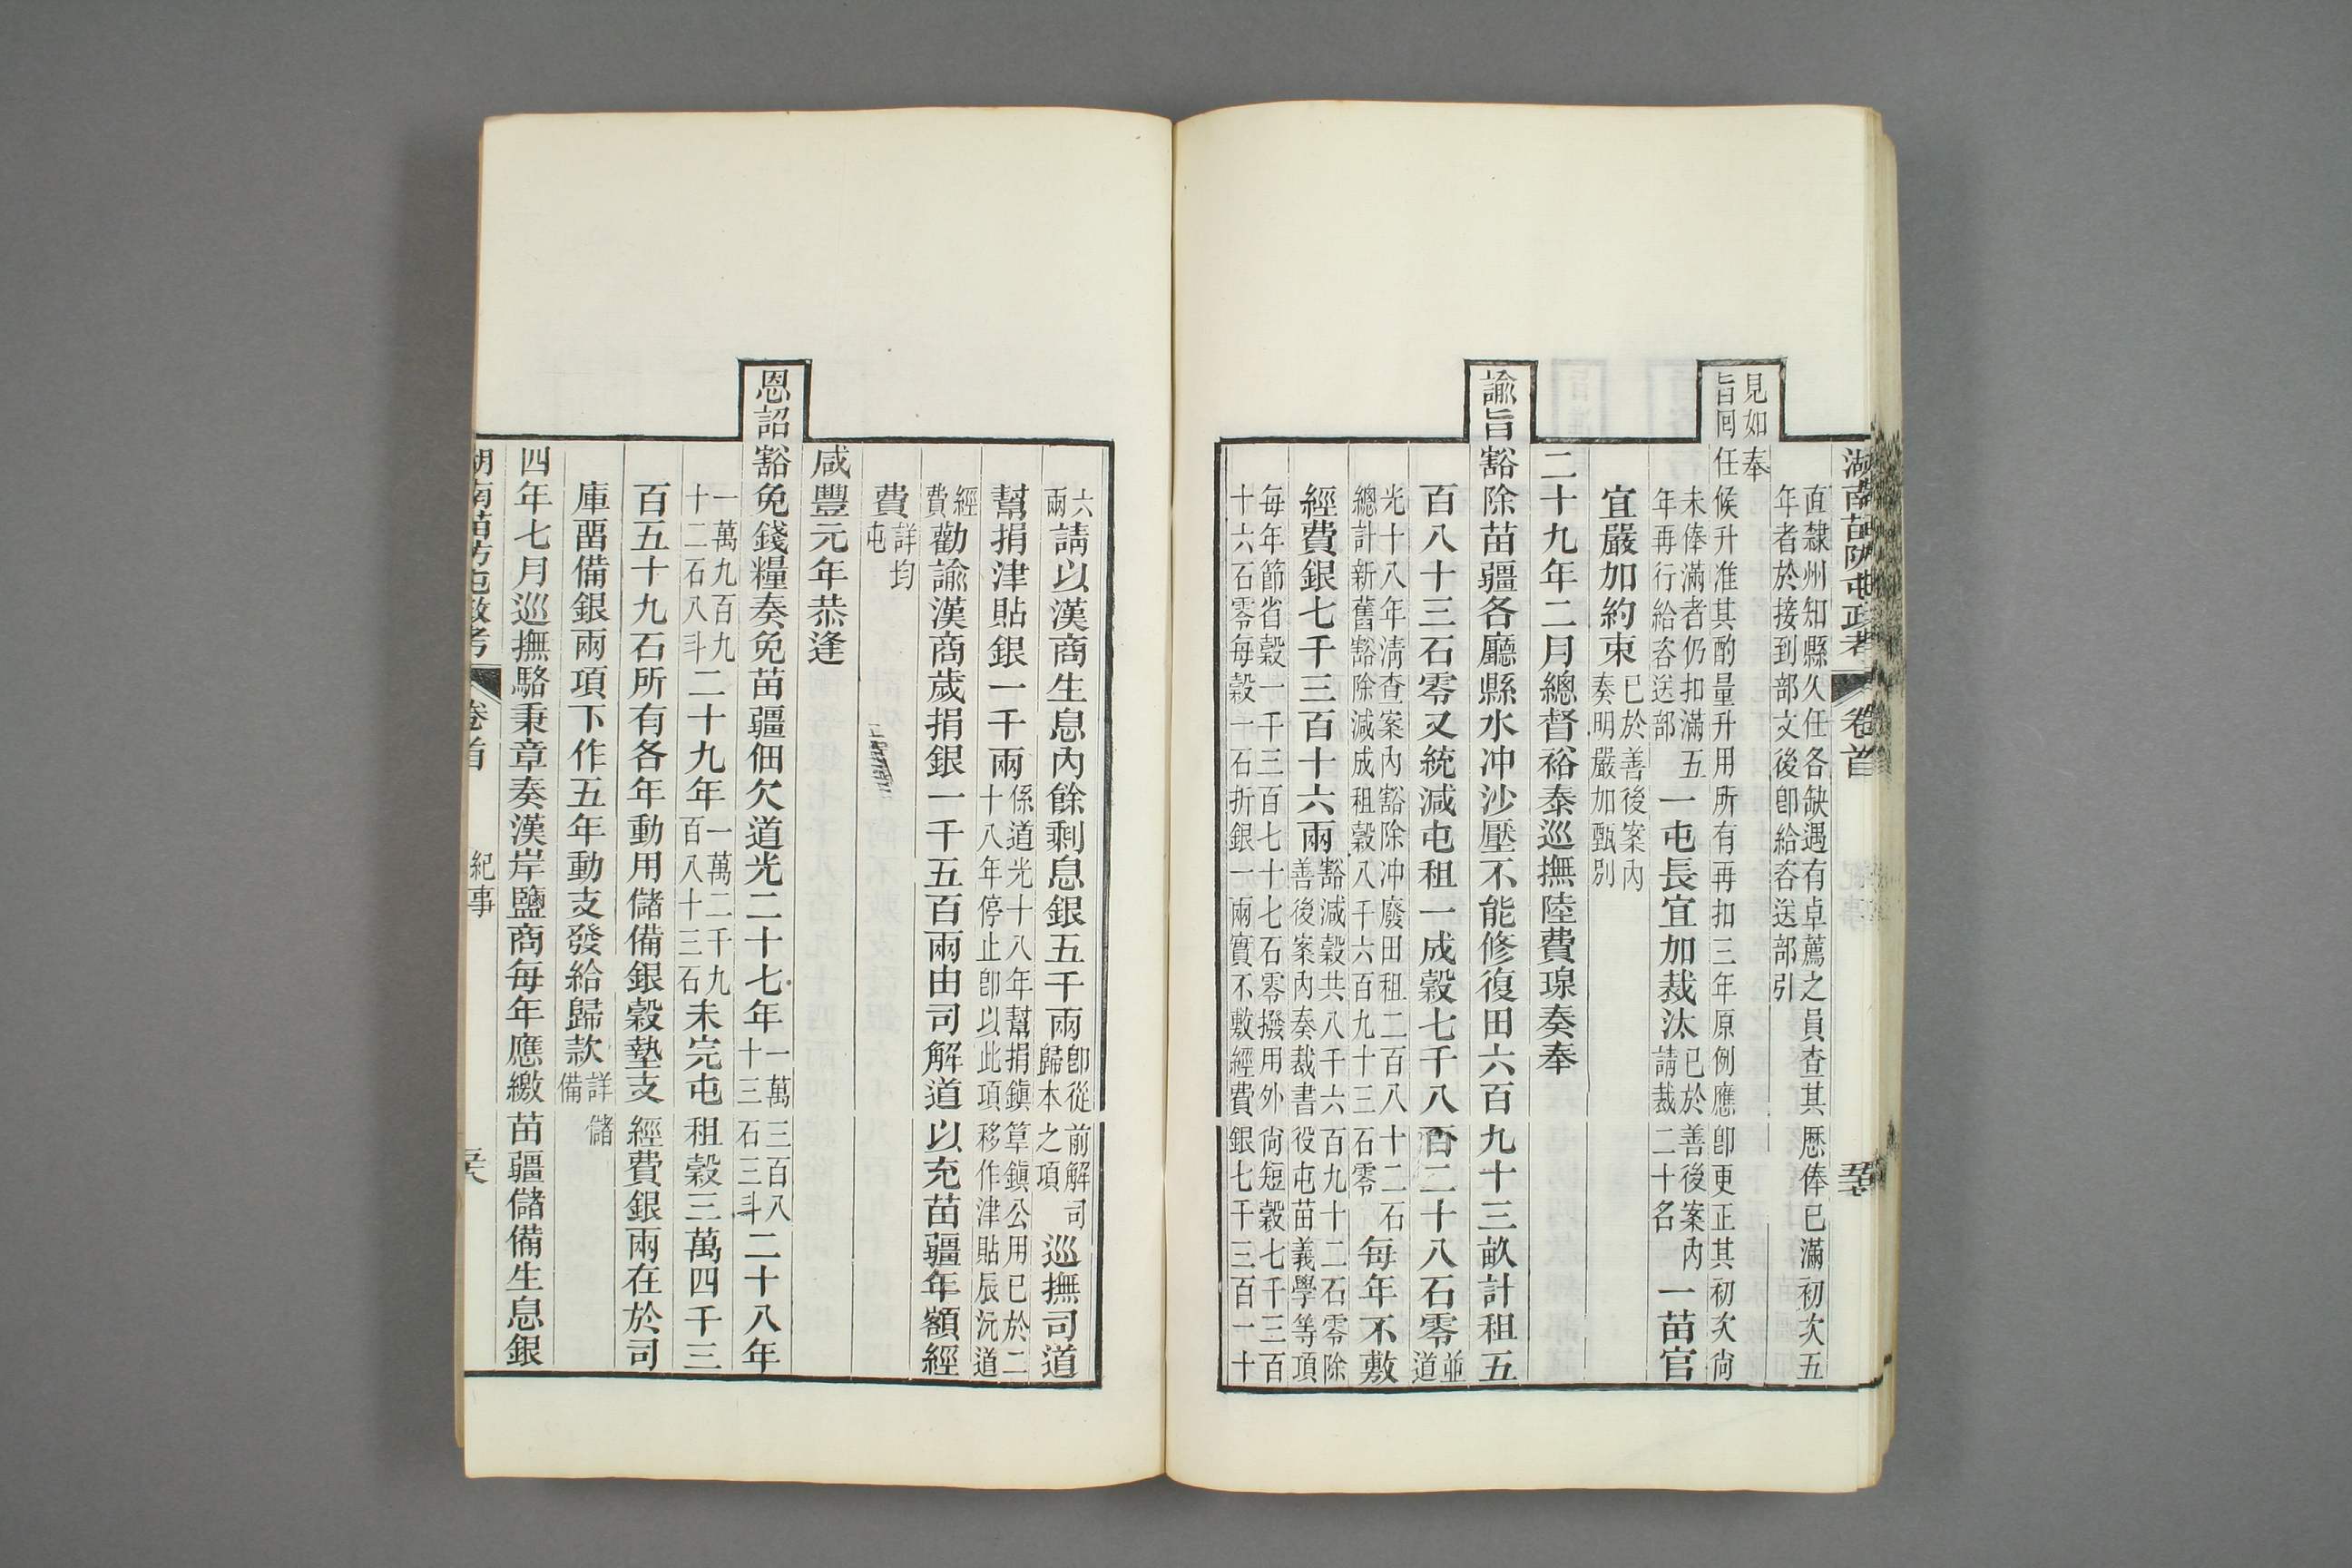 湖南苗防屯政考 卷首
直隸州知縣久任各缺遇有卓薦之員查其歷俸已滿初次五
年者於接到部文後卽給咨送部引
見如奉
旨回任候升准其酌量升用所有再扣三年原例應卽更正其初次尚
未俸滿者仍扣滿五
年再行給咨送部
一屯長宜加裁汰
已於善後案內
請裁二十名
一苗官
宜嚴加約束
已於善後案內
奏明嚴加甄別
二十九年二月總督裕泰巡撫陸費瑔奏奉
諭旨豁除苗疆各廳縣水冲沙壓不能修復田六百九十三畝計租五
百八十三石零又統減屯租一成穀七千八百二十八石零
並
道
光十八年清查案內豁除冲廢田租二百八十二石
總計新舊豁除減成租穀八千六百九十三石零
每年不敷
經費銀七千三百十六兩
豁減穀共八千六百九十二石零除
善後案內奏裁書役屯苗義學等項
每年節省穀一千三百七十七石零撥用外尚短穀七千三百
十六石零每穀一石折銀一兩實不敷經費銀七千三百一十
六
兩
請以漢商生息內餘剩息銀五千兩
卽從前解司
歸本之項
巡撫司道
幫捐津貼銀一千兩
係道光十八年幫捐鎭筸鎭公用已於二
十八年停止卽以此項移作津貼辰沅道
經
費
勸諭漢商歲捐銀一千五百兩由司解道以充苗疆年額經
費
詳均
屯
咸豐元年恭逢
恩詔豁免錢糧奏免苗疆佃欠道光二十七年
一萬三百八
十三石三斗
二十八年
一萬九百九
十二石八斗
二十九年
一萬二千九
百八十三石
未完屯租穀三萬四千三
百五十九石所有各年動用儲備銀穀墊支經費銀兩在於司
庫畱備銀兩項下作五年動支發給歸款
詳儲
備
四年七月巡撫駱秉章奏漢岸鹽商每年應繳苗疆儲備生息銀
湖南苗防屯政考 卷首 紀事